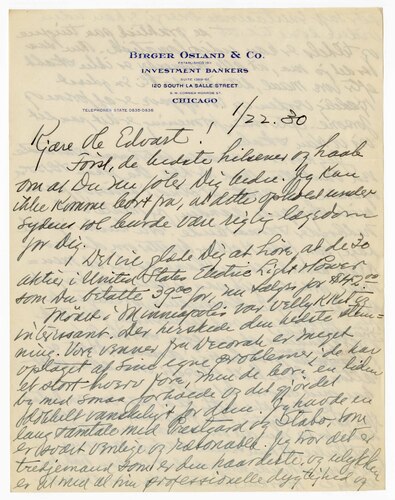 BIRGER OSLAND & CO.
ESTABLISHED 191
INVESTMENT BANKERS
120 SOUTH LA SALLE STREET
S.W. CORNER MONROE ST.
CHICAGO
TELEPHONES STATE
1/22.30
Kjære Ole Edvart!
Först, de bedste hilsener og haab
om at Du nu föler Dig bedre. Jeg kan
ikke komme bort fra, at dette ophold under
Sydens sol burde være rigtig lægedom
for Dig.
Det vil glæde Dig at höre, at de 30
aktier i United States Electric Light & Power
som Du betalte 39.00 for, nu sælges for $45.00
Mödet i Minneapolis var vellykket og
interessant. Der herskede den bedste stem-
ning. Vore venner fra Decorah er meget
optaget af sine egne problemer; de har
et stort hverv fore, men de bor i en liden
by med smaa forhold og det gjör det
dobbelt vanskeligt for dem. Jeg havde en
lang samtale med og Stabo, som
er svært venlige og reasonable. Jeg tror det er
tredjemand som er den haardeste, og ulykken
er at med al sin professionelle dygtighed og